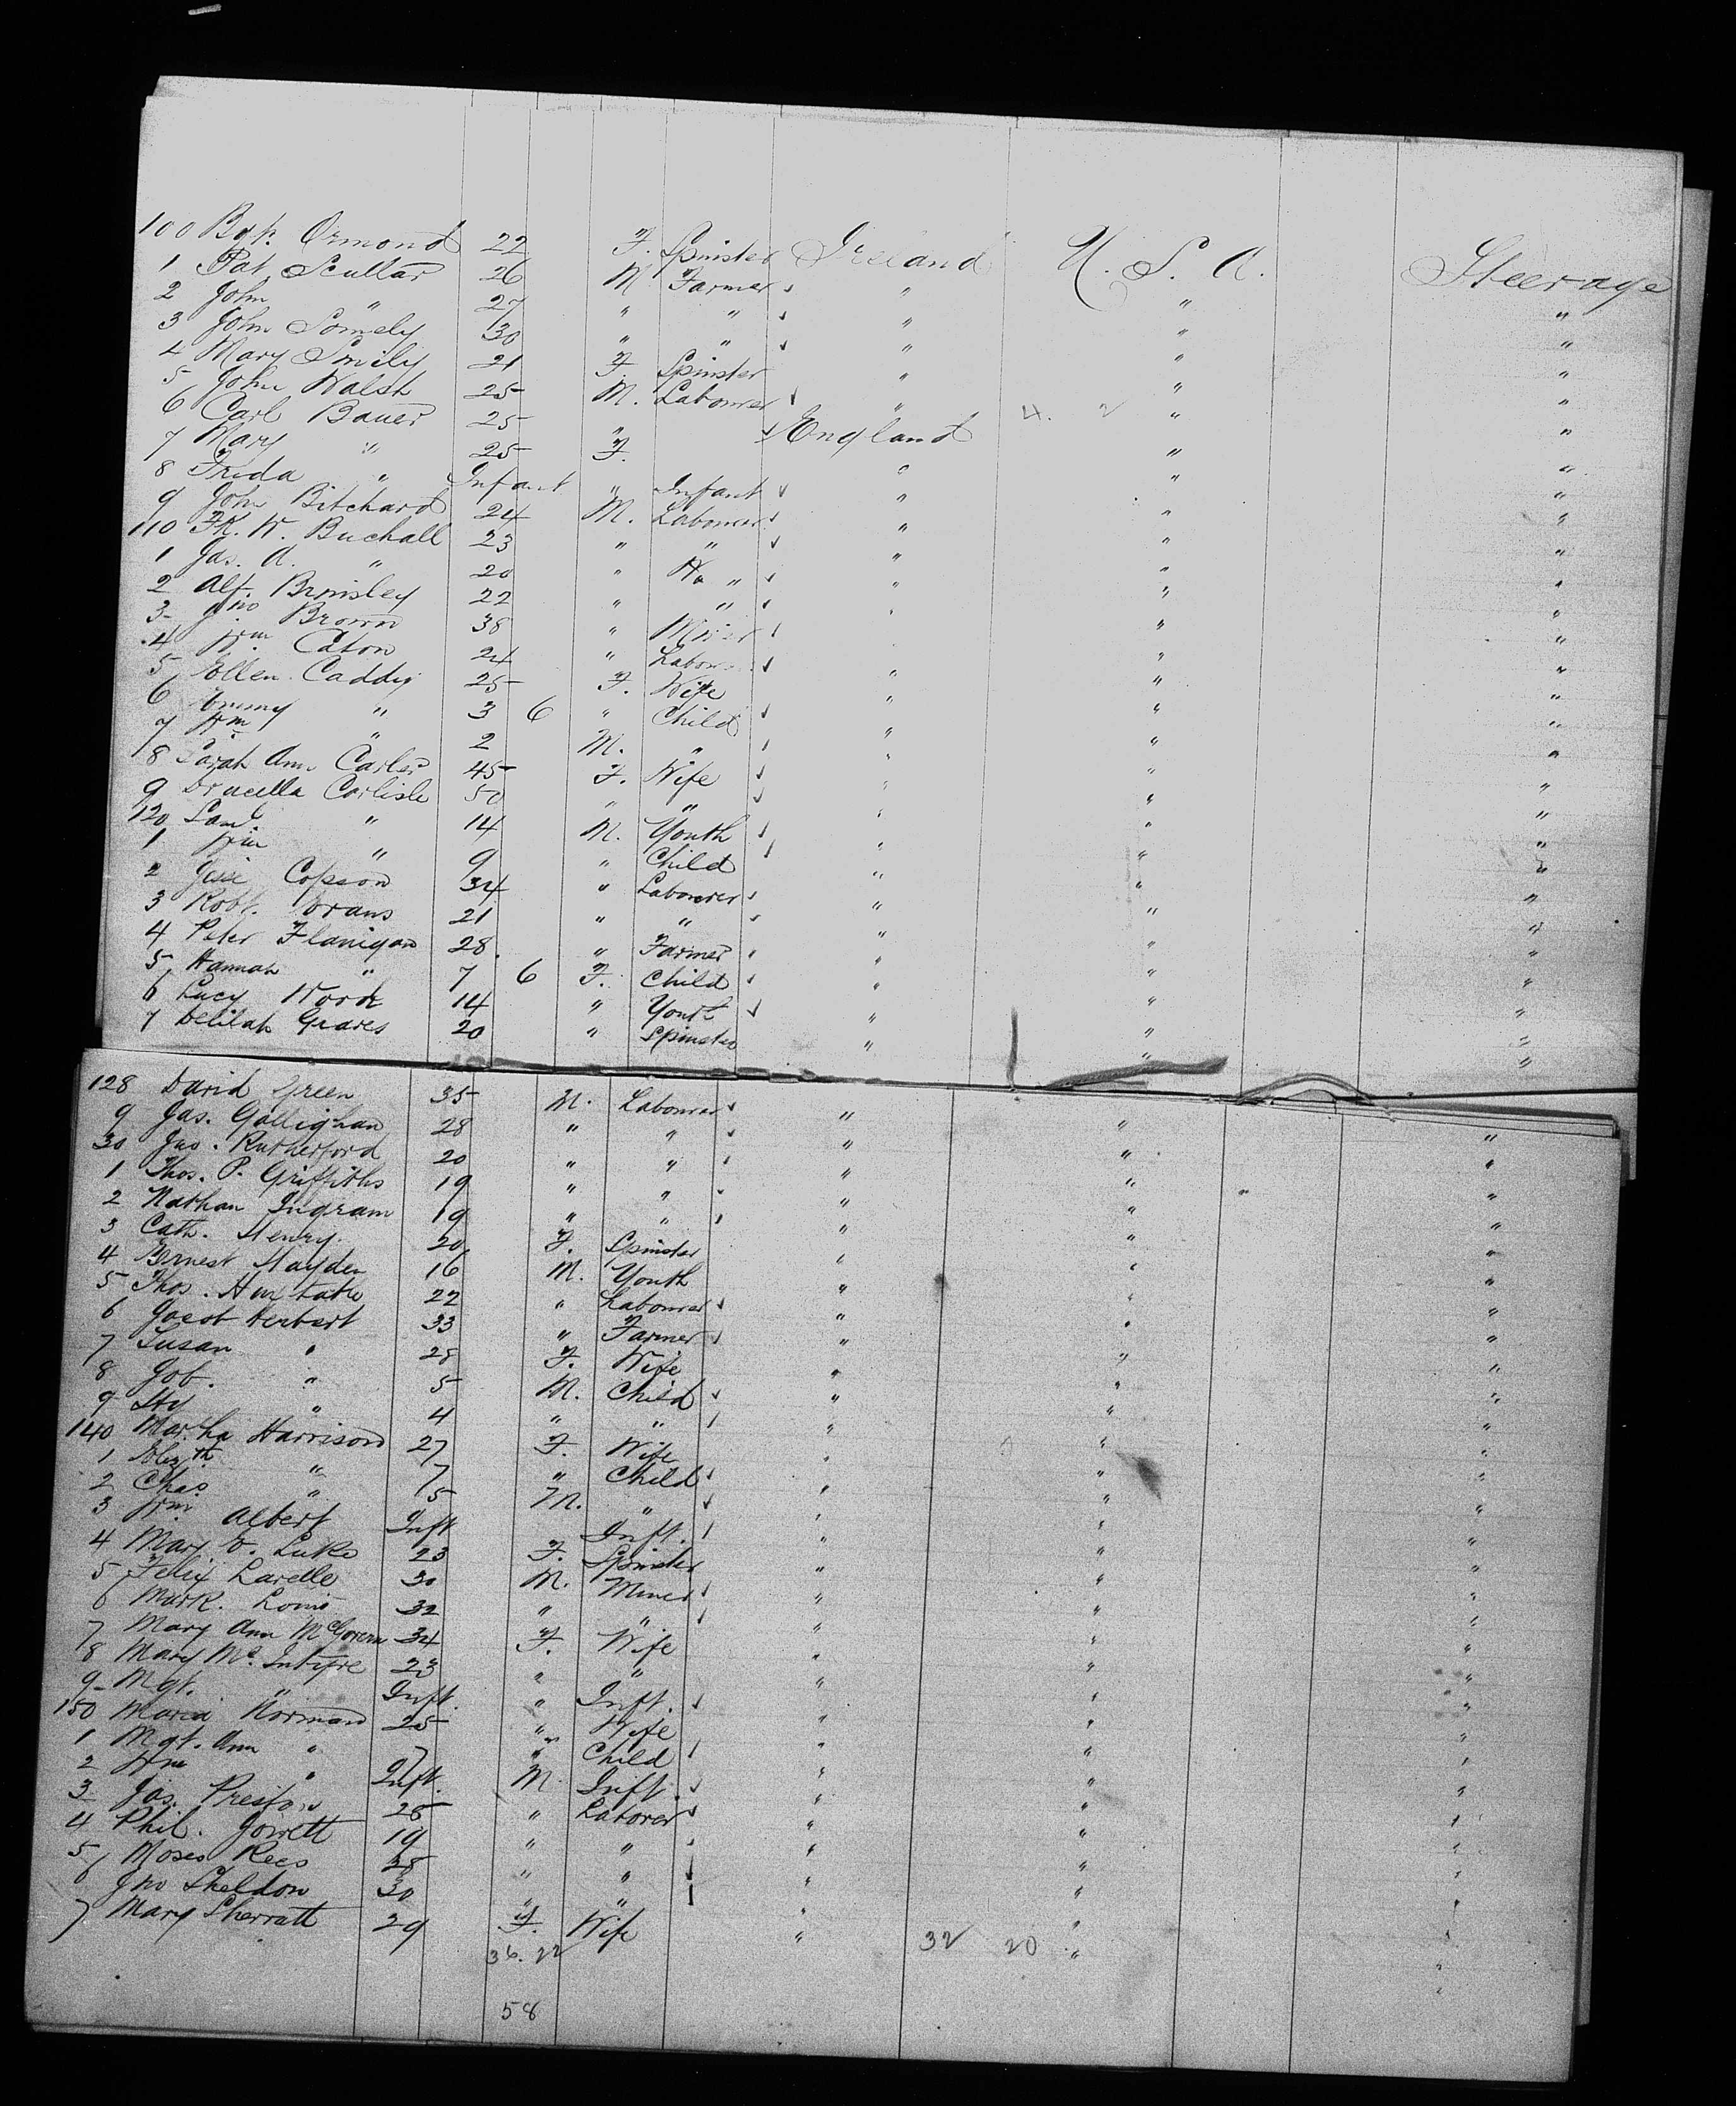 100 Bgt. Ormond 22 F. Spinster Ireland U. S. A. Steerage
1 Pat Scullar 26 M Farmer " " "
2 John " 27 " " " " "
3 John Somely 30 " " " " "
4 Mary Smily 21 F. Spinster " " "
5 John Walsh 25 M. Labourer " " "
6 Carl Bauer 25 " England 4. 2 " "
7 Mary " 25 F. " " "
8 Frida " Infant " Infant " " "
9 John Bitchard 24 M. Labourer " " "
110 Fk. W. Buchall 23 " " " " "
1 Jas. A. " 20 " " " " "
2 Alf. Brinsley 22 " " " " "
3 Jno Brown 38 " Miner " " "
4 Wm. Caton 24 " Labour " " "
5 Ellen Caddy 25 F. Wife " " "
6 Emmy " 3 6 " Child " " "
7 Wm " 2 M. " " " "
8 Sarah Ann Carler 45 F. Wife " " "
9 Drucella Carlisle 50 " " " " "
120 Saml " 14 M. Youth " " "
1 Wm " 9 " Child " " "
2 Jesse Copson 34 " Labourer " " "
3 Robt. Evans 21 " " " " "
4 Peter Flanigan 28 " Farmer " " "
5 Hannah " 7 6 F. Child " " "
6 Lucy 14 " Youth " " "
7 Delilah Graves 20 " Spinster " " "
128 David Green 35 M. Labourer " " "
9 Jas. Gallighan 28 " " " " "
30 Jno. Rutherford 20 " " " " "
1 Thos. P. Griffiths 19 " " " " "
2 Nathan Ingram 19 " " " " "
3 Cath. Henry. 20 F. Spinster " " "
4 Ernest Hayden 16 M. Youth " " "
5 Thos. 22 " Labourer " " "
6 Jacob Herbert 33 " Farmer " " "
7 Susan " 28 F. Wife " " "
8 Job. " 5 M. Child " " "
9 Hy " 4 " " " " "
140 Martha Harrison 27 F. Wife " " "
1 Elizth " 7 " Child " " "
2 Chas " 5 M. " " " "
3 Wm. Albert Inft Inft. " " "
4 Mary E. Luke 23 F. Spinster " " "
5 Felix Lavelle 30 M. Miner " " "
6 Mark. Louis 32 " " " " "
7 Mary Ann McGovern 34 F. Wife " " "
8 Mary Mc. Intyre 23 " " " " "
9 Mgt. " Inft. " Inft. " " "
150 Maria Norman 25 " Wife " " "
1 Mgt. Ann " 7 " Child " " "
2 Wm " Inft. M Inft. " " "
3 Jas. Preston 28 " Laborer " " "
4 Phil. Jowett 19 " " " " "
5 Moses Rees 28 " " " " "
6 Jno Sheldon 30 " " " " "
7 Mary Sherratt 29 F. Wife " " "
36. 22 32 20
58